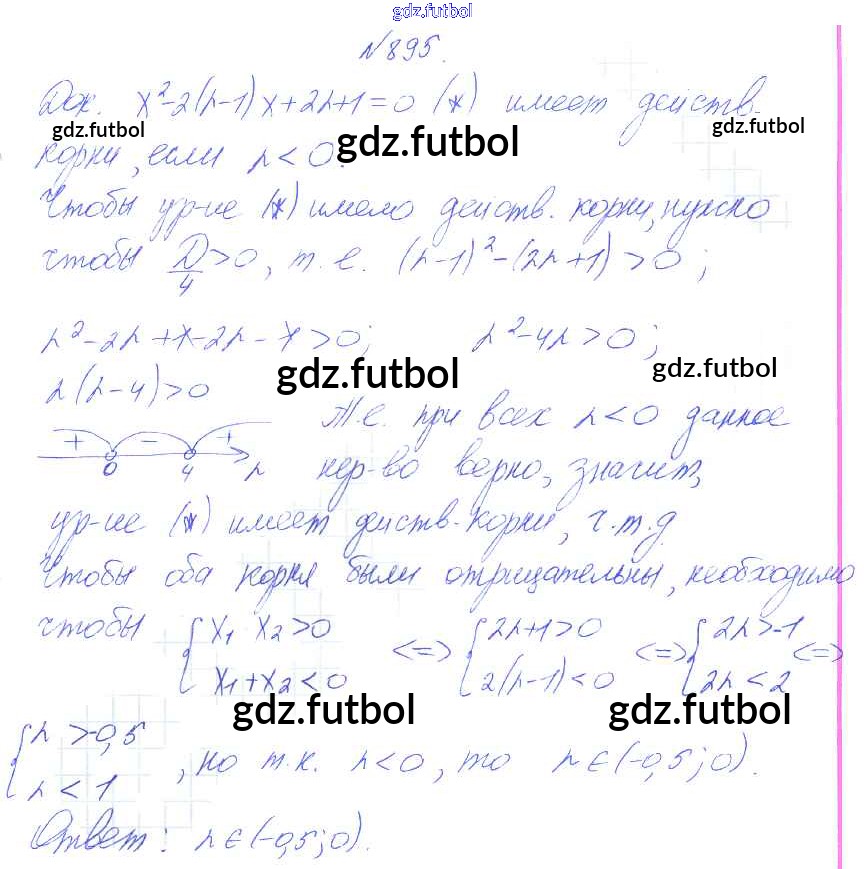 gdz.futbol
№895.
Док. x²-2(h-1)x+2h+1=0 (*) имеет действ.
gdz.futbol gdz.futbol gdz.futbol
корни, если h<0.
Чтобы ур-ие (*) имело действ. корни, нужно
чтобы D/4>0, т.е. (h-1)²-(2h+1)>0;
h²-2h+1-2h-1>0; h²-4h>0;
gdz.futbol gdz.futbol
h(h-4)>0
+ - + Т.е. при всех h<0 данное
0 4 h нер-во верно, значит,
ур-ие (*) имеет действ. корни, ч.т.д.
Чтобы оба корня были отрицательны, необходимо
чтобы { x₁ x₂>0 <=> { 2h+1>0 <=> { 2h>-1 <=>
x₁+x₂<0 2(h-1)<0 2h<2
gdz.futbol gdz.futbol
{ h>-0,5
h<1 , но т.к. h<0, то h∈(-0,5;0).
Ответ: h∈(-0,5;0).